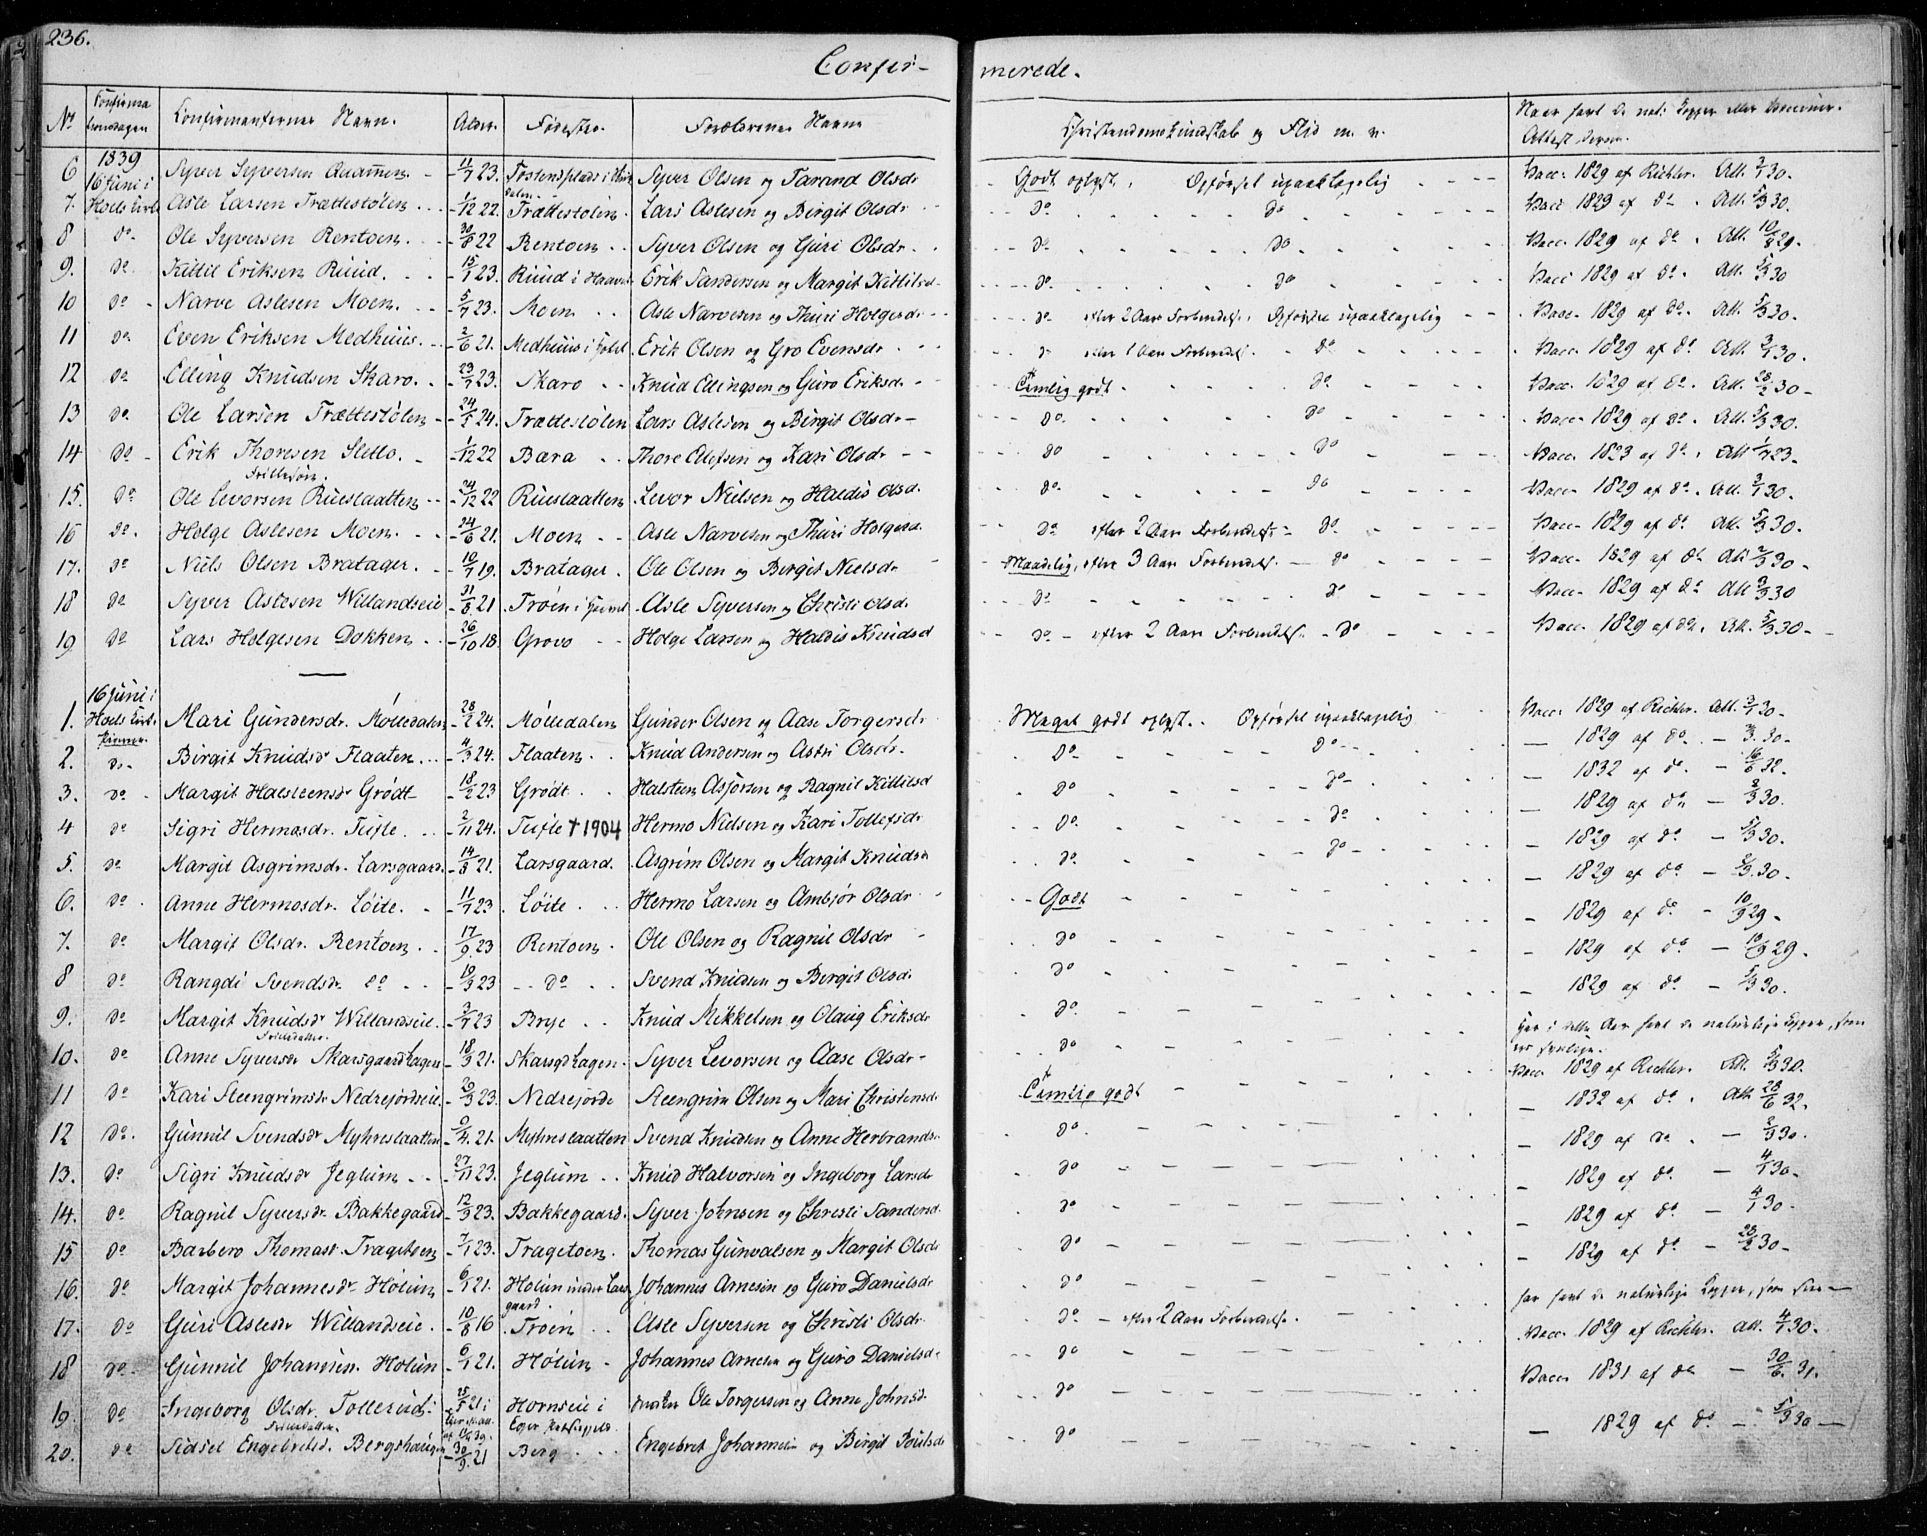 236.
Confir- merede.
No Confirmationsdagen Confirmanternes Navn. Alder. Fødested. Forældrenes Navne Christendomskundskab og Flid m. v. Naar havt de nat: Kopper eller Vaccine. Attest derom.
1839
6 16 Juni i Syver Syversen - 11/7 23. Syver Olsen og Tarand Olsdr Godt oplyst. Opførsel upaaklagelig Vacc. 1829 af Richter. Att. 2/1 30.
7. Hoels Kirke Asle Larsen Trættestølen - 1/12 22. Trættestølen. Lars Aslesen og Birgit Olsdr do do Vacc. 1829 af do. Att. 5/3 30.
8 do Ole Syversen Rentoen. - 22 Rentoen Syver Olsen og Guri Olsdr. do do Vacc. 1829 af do. Att. 29.
9. do Kittil Eriksen Ruud. - 15/7 23. Ruud i Erik Sandersen og Margit Kittilsd do do Vacc 1829 af do. Att. 5/3 30
10 do Narve Aslesen Moen. - 5/7 23. Moen Asle Narvesen og Thuri Holgesdr do efter 2 Aars Forberedelse. Opførsel upaaklagelig Vacc. 1829 af do. Att. 5/3 30.
11 do Even Eriksen Medhuus. - 2/6 21. Medhuus i Erik Olsen og Gro Evensdr do efter 1 Aars Forberedelse. do Vacc. 1829 af do Att. 2/1 30.
12 do Elling Knudsen Skaro. - 23/7 23. Skaro Knud Ellingsen og Guro Eriksd. Temlig godt. do Vacc. 1829 af do. Att. 28/2 30-
13 do. Ole Larsen Trættestølen - 24/5 24. Trættestølen Lars Aslesen og Birgit Olsdr- do. do Vacc. 1829 af do Att. 5/3 30.
14 do - Erik Thoresen Sletto. - 1/12 22 Bæra Thore Ellefsen og Kari Olsdr do do Vacc. 1823 af do. Att 1/7 23-
15. do Ole Levorsen Rueslaatten - 24/12 22 Rueslaatten Levor Nielsen og Haldis Olsd. do. do Vacc. 1829 af do. Att. 2/1 30.
16 do. Holge Aslesen Moen. - 24/6 21. Moen Asle Narvesen og Thuri Holgesd. do efter 2 Aars Forberedelse - do. Vacc. 1829 af do. Att. 5/3 30.
17. do Niels Olsen Bratager. - 10/7 19. Bratager. Ole Olsen og Birgit Nielsdr Maadelig, efter 3 Aars Forberedelse. do Vacc. 1829 af do Att 2/3 30.
18 do Syver Aslesen Willandseie - 31/8 21 Trøen i Asle Syversen og Christi Olsdr do do Vacc. 1829 af do Att 2/3 30
19 do Lars Holgesen Dokken - 26/10 18. Grovo Holge Larsen og Haldis Knudsd do - efter 2 Aars Forberedelse. - do Vacc. 1829 af do. Att. 5/3 30-
16 Juni i
1. Hoels Kirke Mari Gundersdr. Mølledalen - 28/2 24. Mølledalen Gunder Olsen og Aase Torgersdr Meget godt oplyst. Opførsel upaaklagelig Vacc. 1829 af Richter. Att. 2/1 30-
2. do - Birgit Knudsdr Flaaten. - 4/3 24. Flaaten. Knud Andersen og Astri Olsdr. do do - 1829 af do. - 30-
3. do Margit Halsteensdr Grødt - 18/2 23 Grødt Halsteen Asjørsen og Ragnil Kittilsd do do - 1832 af do. - 16/6 32.
4 do Sigri Hermosdr. Tufte. - 2/11 24. Tufte † 1904 Hermo Nielsen og Kari Tollefsdr do. do - 1829 af do - 2/3 30.
5. do Margit Asgrimsdr. Larsgaard. - 14/8 21. Larsgaard. Asgrim Olsen og Margit Knudsdr do. do - 1829 af do - 5/3 30.
6. do Anne Hermosdr. Løite. - 11/7 23 Løite. Hermo Larsen og Ambjør Olsdr Godt - 1829 af do - 5/3 30.
7. do Margit Olsdr. Rentoen - 17/9 23 Rentoen Ole Olsen og Ragnil Olsdr do - 1829 af do - 10/9 29-
8 do Rangdi Svendsdr do - 19/3 23 do Svend Knudsen og Bergit Olsd. do - 1829 af do - 29.
9. do Margit Knudsdr Willandseie. - 3/7 23 Brye Knud Mekkelsen og Olaug Eriksdr do - 1829 af do - 5/3 30.
10. do Anne Syversdr Skarsgaardhagen - 18/3 21. Skarsgdhagen. Syver Levorsen og Aase Olsdr- do Har i dette Aar havt de naturlige Kopper, som ere synlige.
11 do Kari Steengrimsdr Nedrejordseie. - 20/3 23. Nedrejorde Steengrim Olsen og Mari Christensdr Temlig godt Vacc 1829 af Richter. Att. 5/3 30.
12 do. Gunnil Svendsdr Myhreslaatten - 21. Myhreslaatten Svend Knudsen og Anne Herbrandsd. do. - 1832 af do. Att. 28/6 32.
13. do Sigri Knudsdr Jeglum - 27/11 23. Jeglum Knud Halvorsen og Ingeborg Larsdr do - 1829 af do. - 2/3 30.
14. do Ragnil Syversdr. Bakkegaard - 12/3 23. Bakkegaard. Syver Johnsen og Christi Sandersd. do - 1829 af do - 4/1 30-
15 do Barbero Thomasd. Tragetoen - 7/1 23. Tragetoen. Thomas Gunvalsen og Margit Olsdr do - 1829 af do - 4/1 30-
16. do Margit Johannesdr Hølun - 6/1 21. Holun under Larsgaard. Johannes Arnesen og Guro Danielsdr do - 1829 af do - 28/2 30-
17. do Guri Aslesdr Willandseie. - 10/8 16 Trøen Asle Syversen og Christi Olsdr. do - efter 2 Aars Forberedelse. har havt de naturlige Kopper, som
18 do. Gunnil Johannesdr. Holun - 6/1 21. Hølun - Johannes Arnesen og Guro Danielsdr do Vacc. 1829 af Richter. Att. 4/1 30.
19. do Ingeborg Olsdr. Tollerud 21 Hornseie i Eger Præstegjeld. Ole Torgersen og Anne Johnsd. do Vacc. 1831 af do - 30/6 31.
20. do Sidsel Engebretsd. Bergshaugen - 30/9 21 Berg Engebret Johannesen og Birgit Poulsdr do - 1829 af do - 5/3 30-